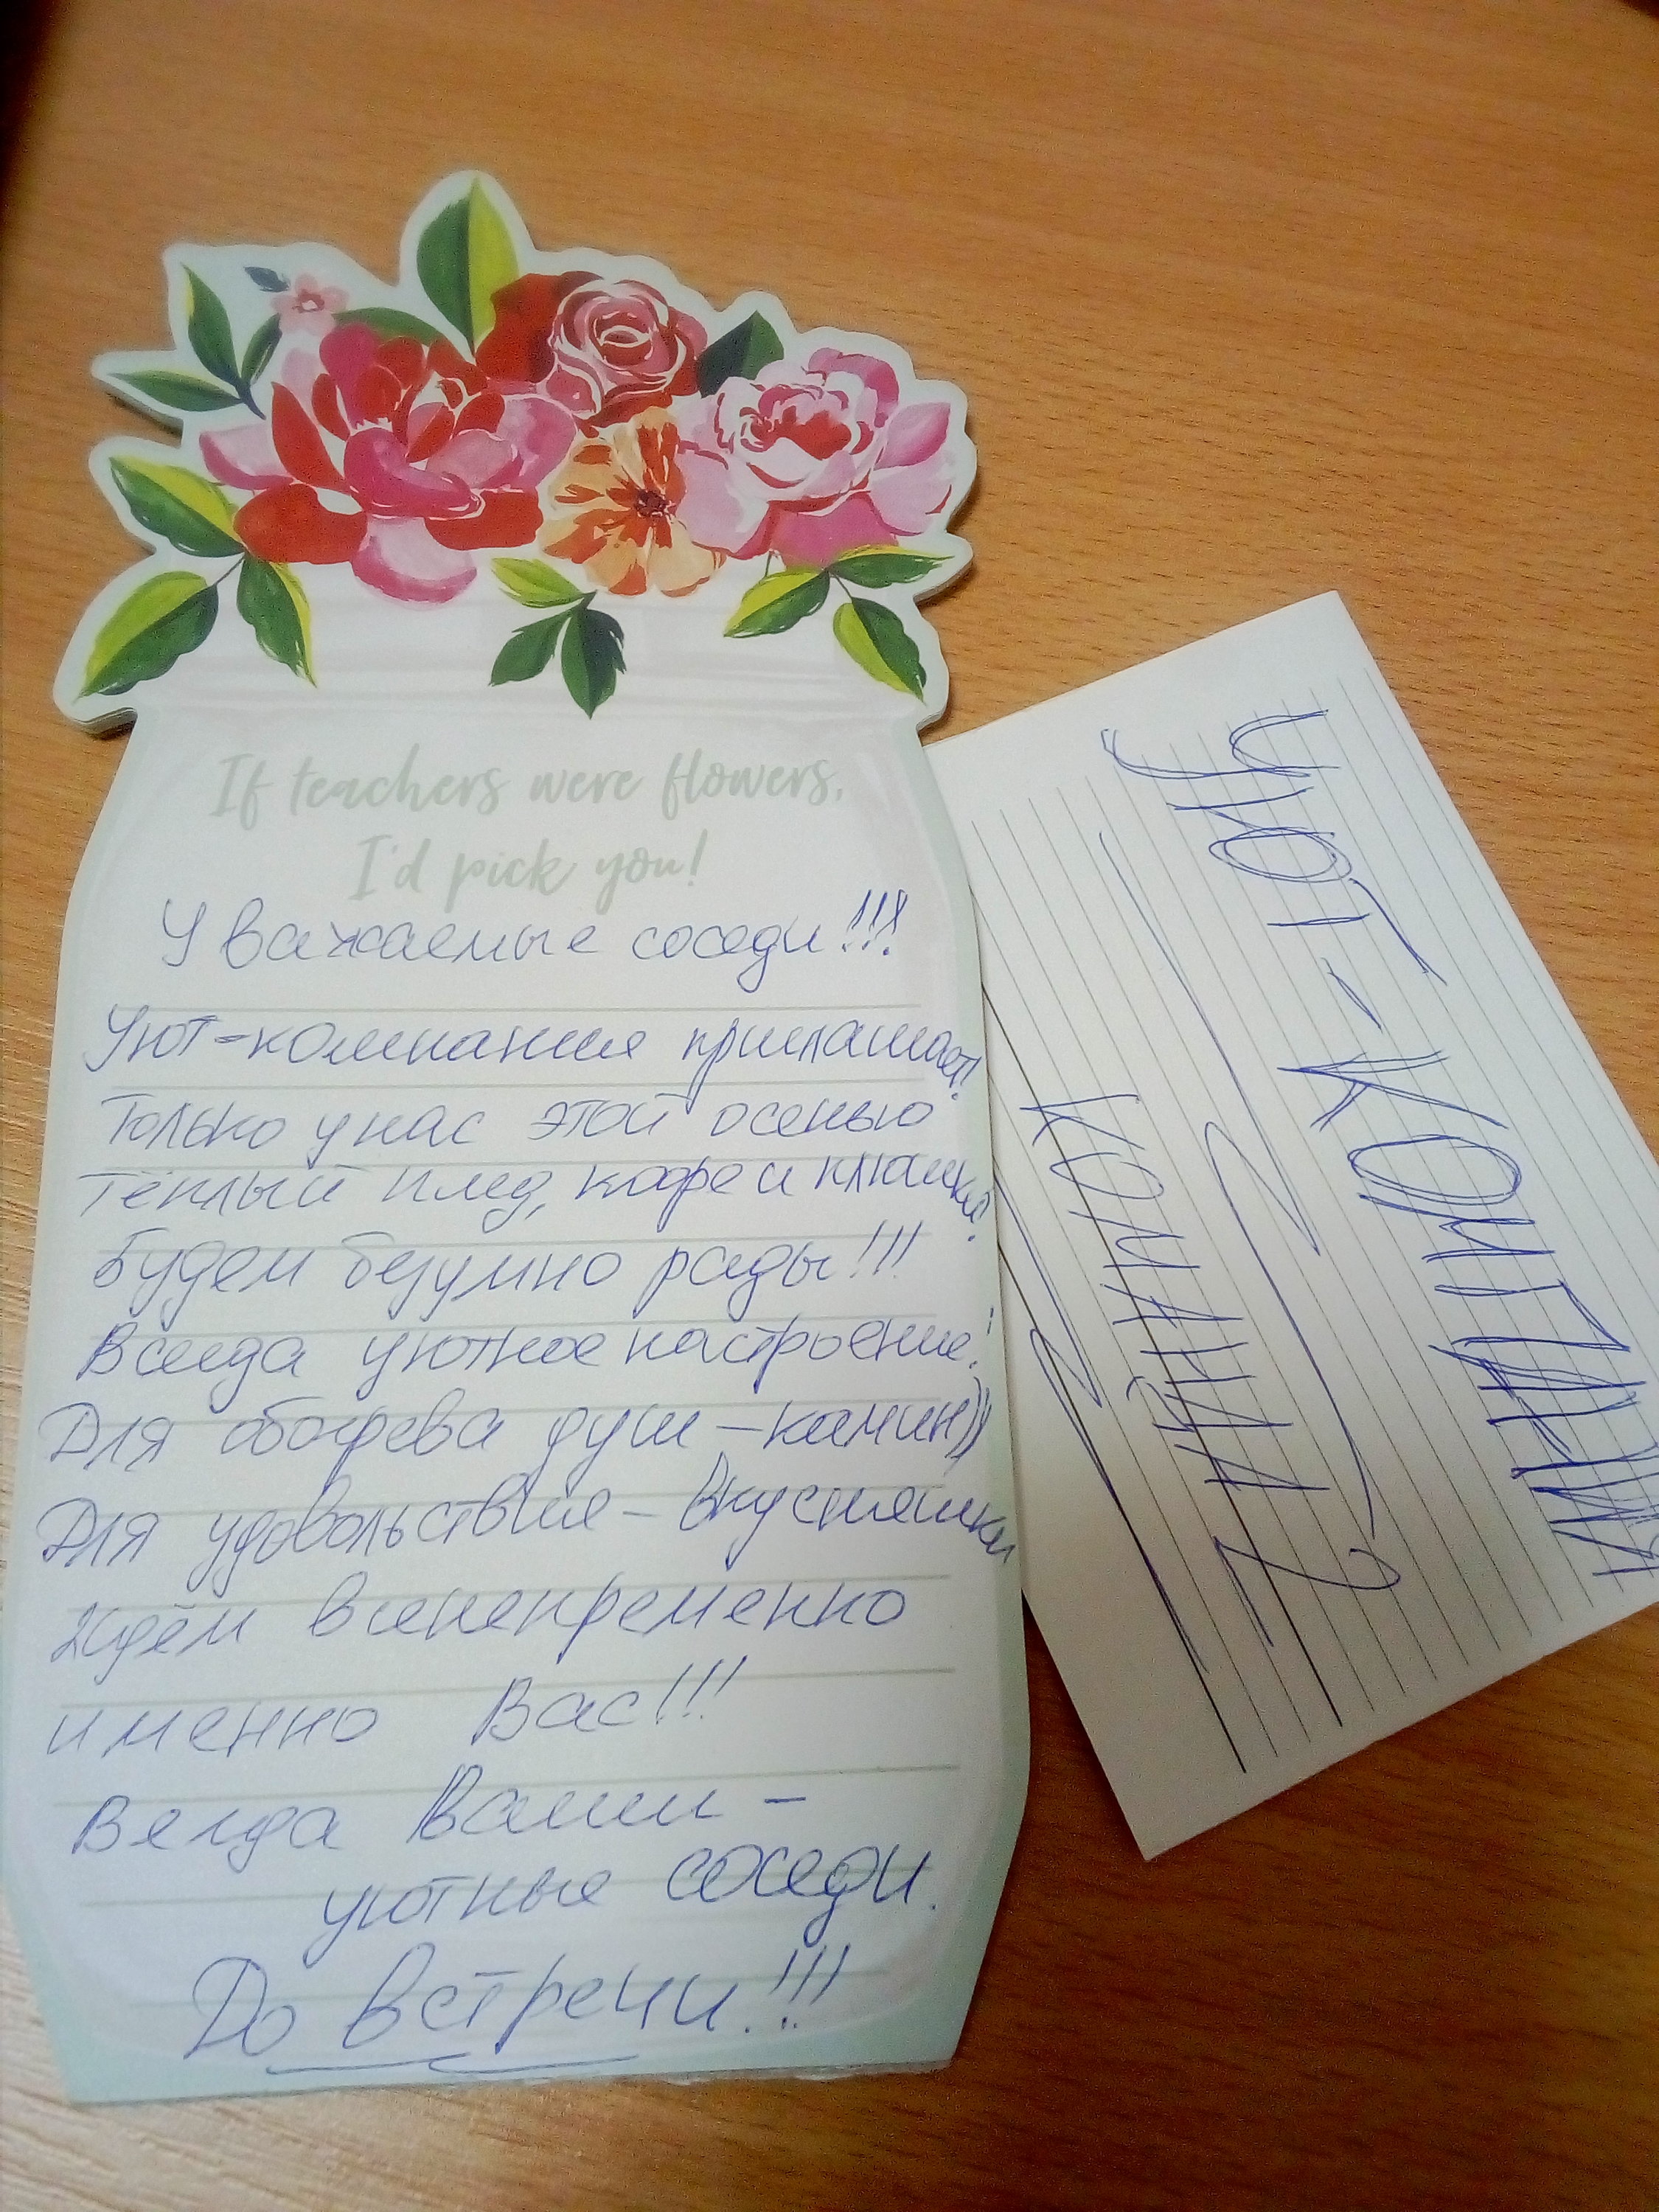 If teachers were flowers,
I'd pick you!
Уважаемые соседи!!!
Уют-компания приглашает!
Только у нас этой осенью
тёплый плед, кофе и плюшки!
Будем безумно рады!!!
Всегда уютное настроение!
Для обогрева душ - камин))
Для удовольствия - вкусняшки
Ждём всенепременно
именно Вас!!!
Всегда Ваши -
уютные соседи.
До встречи!!!
УЮТ-КОМПАНИЯ
КОМАНДА 2